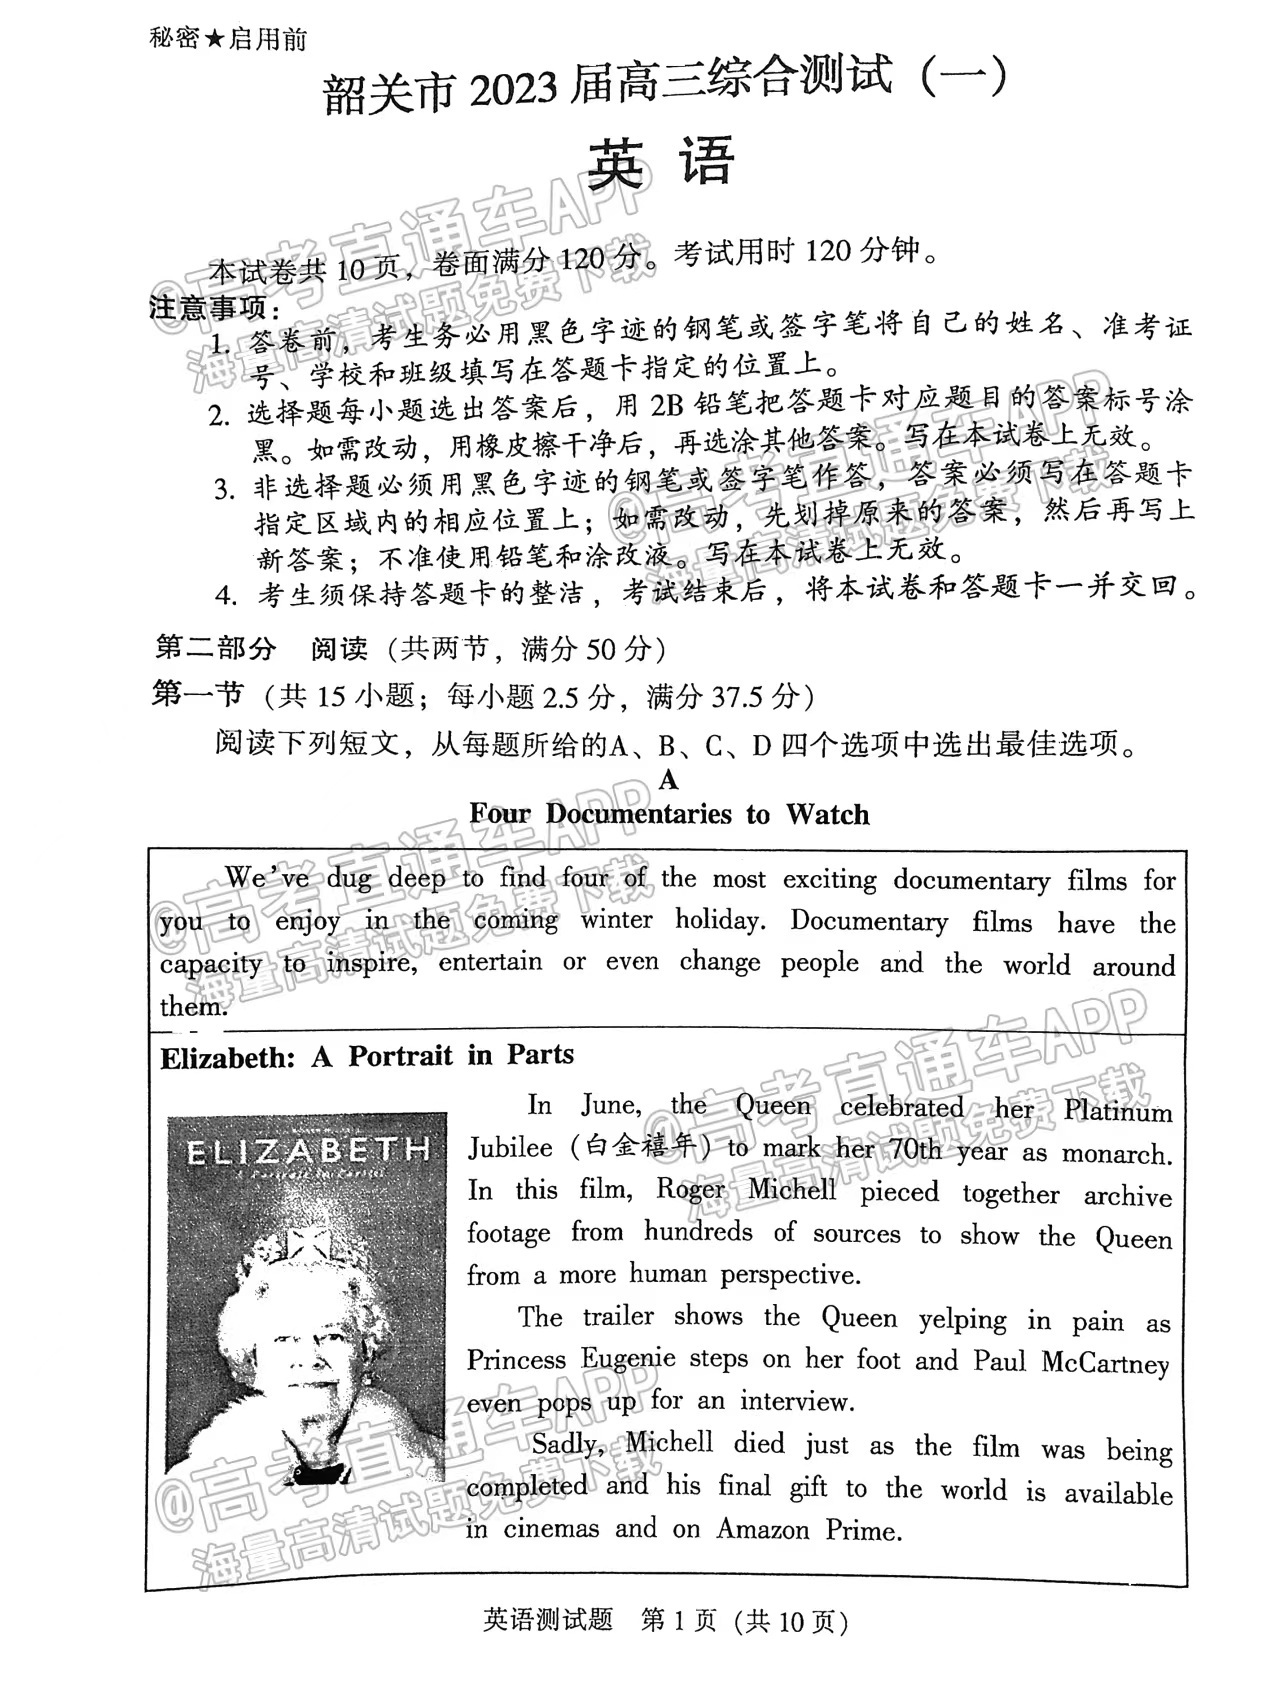 秘密★启用前
韶关市 2023 届高三综合测试（一）
英 语
本试卷共 10 页，卷面满分 120 分。考试用时 120 分钟。
注意事项：
1. 答卷前，考生务必用黑色字迹的钢笔或签字笔将自己的姓名、准考证
号、学校和班级填写在答题卡指定的位置上。
2. 选择题每小题选出答案后，用 2B 铅笔把答题卡对应题目的答案标号涂
黑。如需改动，用橡皮擦干净后，再选涂其他答案。写在本试卷上无效。
3. 非选择题必须用黑色字迹的钢笔或签字笔作答，答案必须写在答题卡
指定区域内的相应位置上；如需改动，先划掉原来的答案，然后再写上
新答案；不准使用铅笔和涂改液。写在本试卷上无效。
4. 考生须保持答题卡的整洁，考试结束后，将本试卷和答题卡一并交回。
第二部分 阅读（共两节，满分 50 分）
第一节（共 15 小题；每小题 2.5 分，满分 37.5 分）
阅读下列短文，从每题所给的A、B、C、D 四个选项中选出最佳选项。
A
Four Documentaries to Watch
We've dug deep to find four of the most exciting documentary films for
you to enjoy in the coming winter holiday. Documentary films have the
capacity to inspire, entertain or even change people and the world around
them.
Elizabeth: A Portrait in Parts
ELIZABETH
In June, the Queen celebrated her Platinum
Jubilee（白金禧年）to mark her 70th year as monarch.
In this film, Roger Michell pieced together archive
footage from hundreds of sources to show the Queen
from a more human perspective.
The trailer shows the Queen yelping in pain as
Princess Eugenie steps on her foot and Paul McCartney
even pops up for an interview.
Sadly, Michell died just as the film was being
completed and his final gift to the world is available
in cinemas and on Amazon Prime.
英语测试题 第 1 页（共 10 页）
@高考直通车APP
海量高清试题免费下载
@高考直通车APP
海量高清试题免费下载
@高考直通车APP
海量高清试题免费下载
@高考直通车APP
海量高清试题免费下载
@高考直通车APP
海量高清试题免费下载